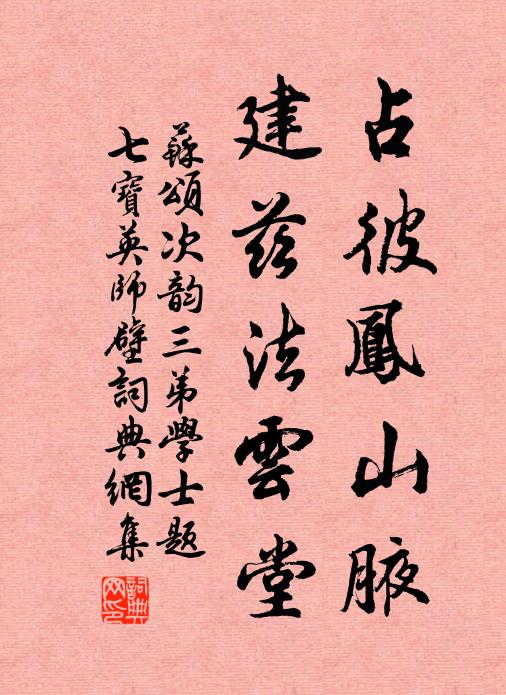 占彼鳳山腋
建茲法雲堂
蘇頌次韵三弟學士題
七寶英師壁詞典網集
詞典網印